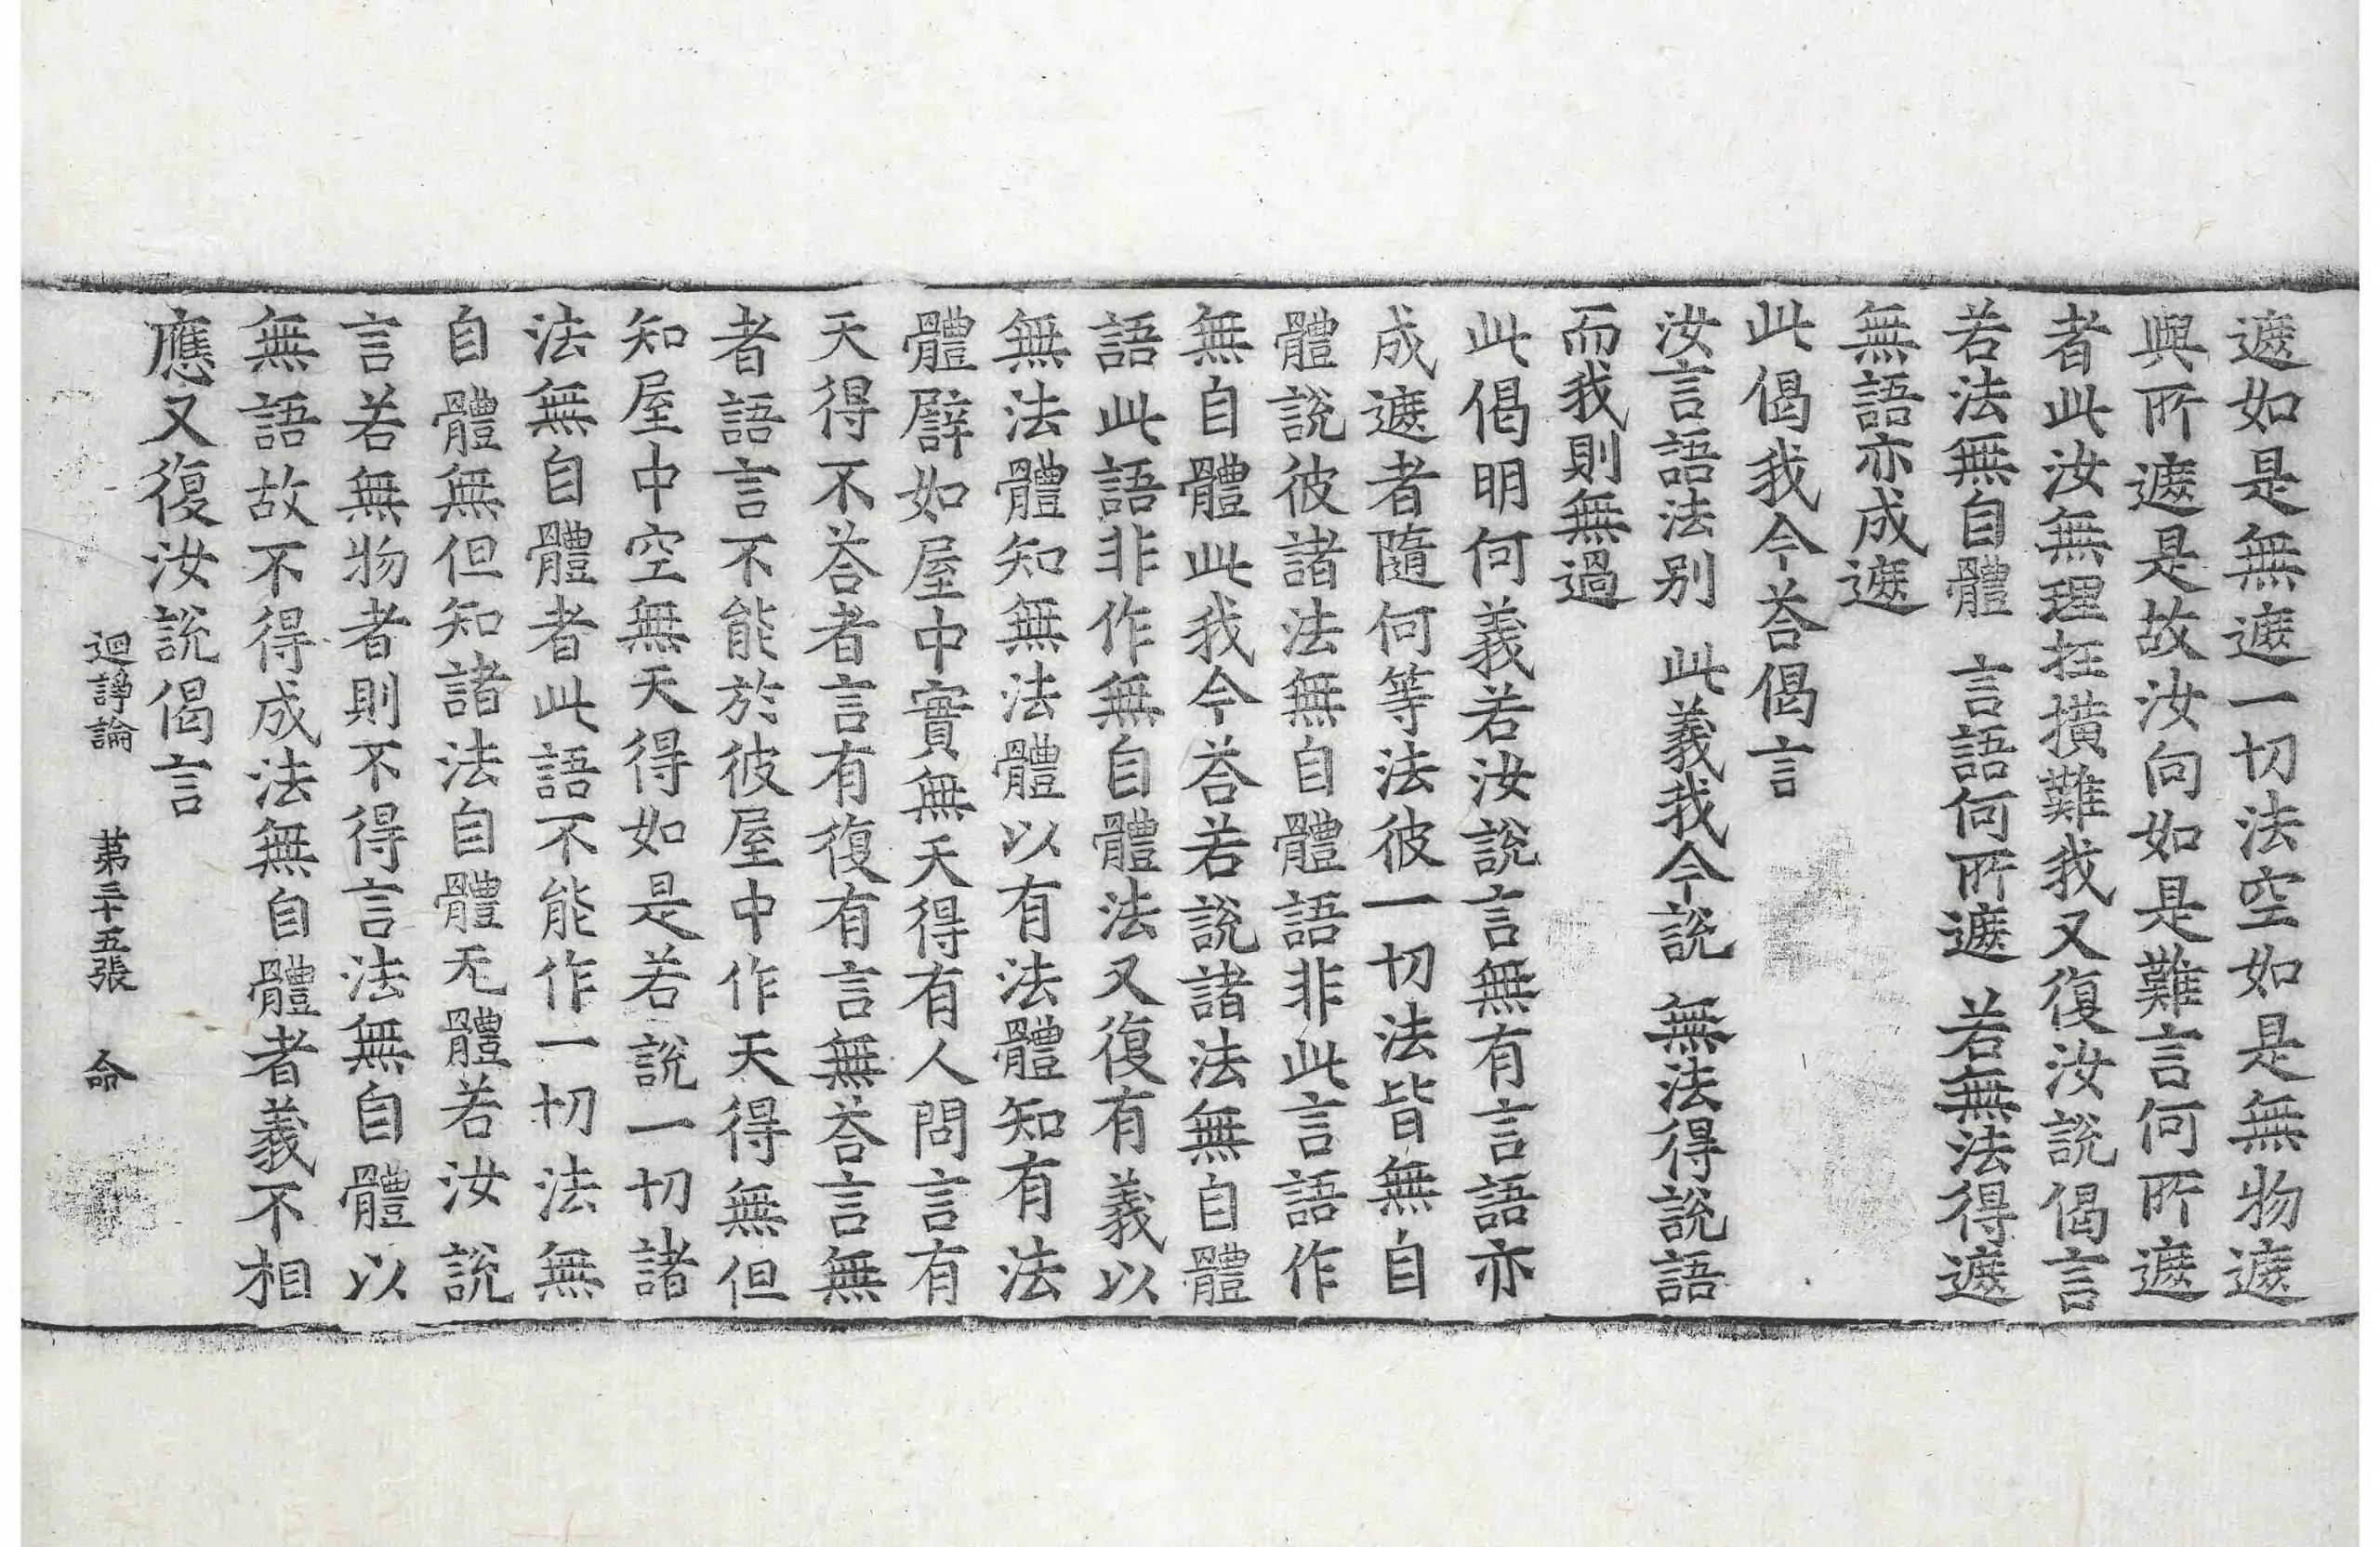 遮如是無遮一切法空如是無物遮
與所遮是故汝向如是難言何所遮
者此汝無理抂撗難我又復汝說偈言
若法無自體　言語何所遮　若無法得遮
無語亦成遮
此偈我今荅偈言
汝言語法別　此義我今說　無法得說語
而我則無過
此偈明何義若汝說言無有言語亦
成遮者隨何等法彼一切法皆無自
體說彼諸法無自體語非此言語作
無自體此我今荅若說諸法無自體
語此語非作無自體法又復有義以
無法體知無法體以有法體知有法
體譬如屋中實無天得有人問言有
天得不荅者言有復有言無荅言無
者語言不能於彼屋中作天得無但
知屋中空無天得如是若說一切諸
法無自體者此語不能作一切法無
自體無但知諸法自體无體若汝說
言若無物者則不得言法無自體以
無語故不得成法無自體者義不相
應又復汝說偈言
迴諍論　苐三十五張　命